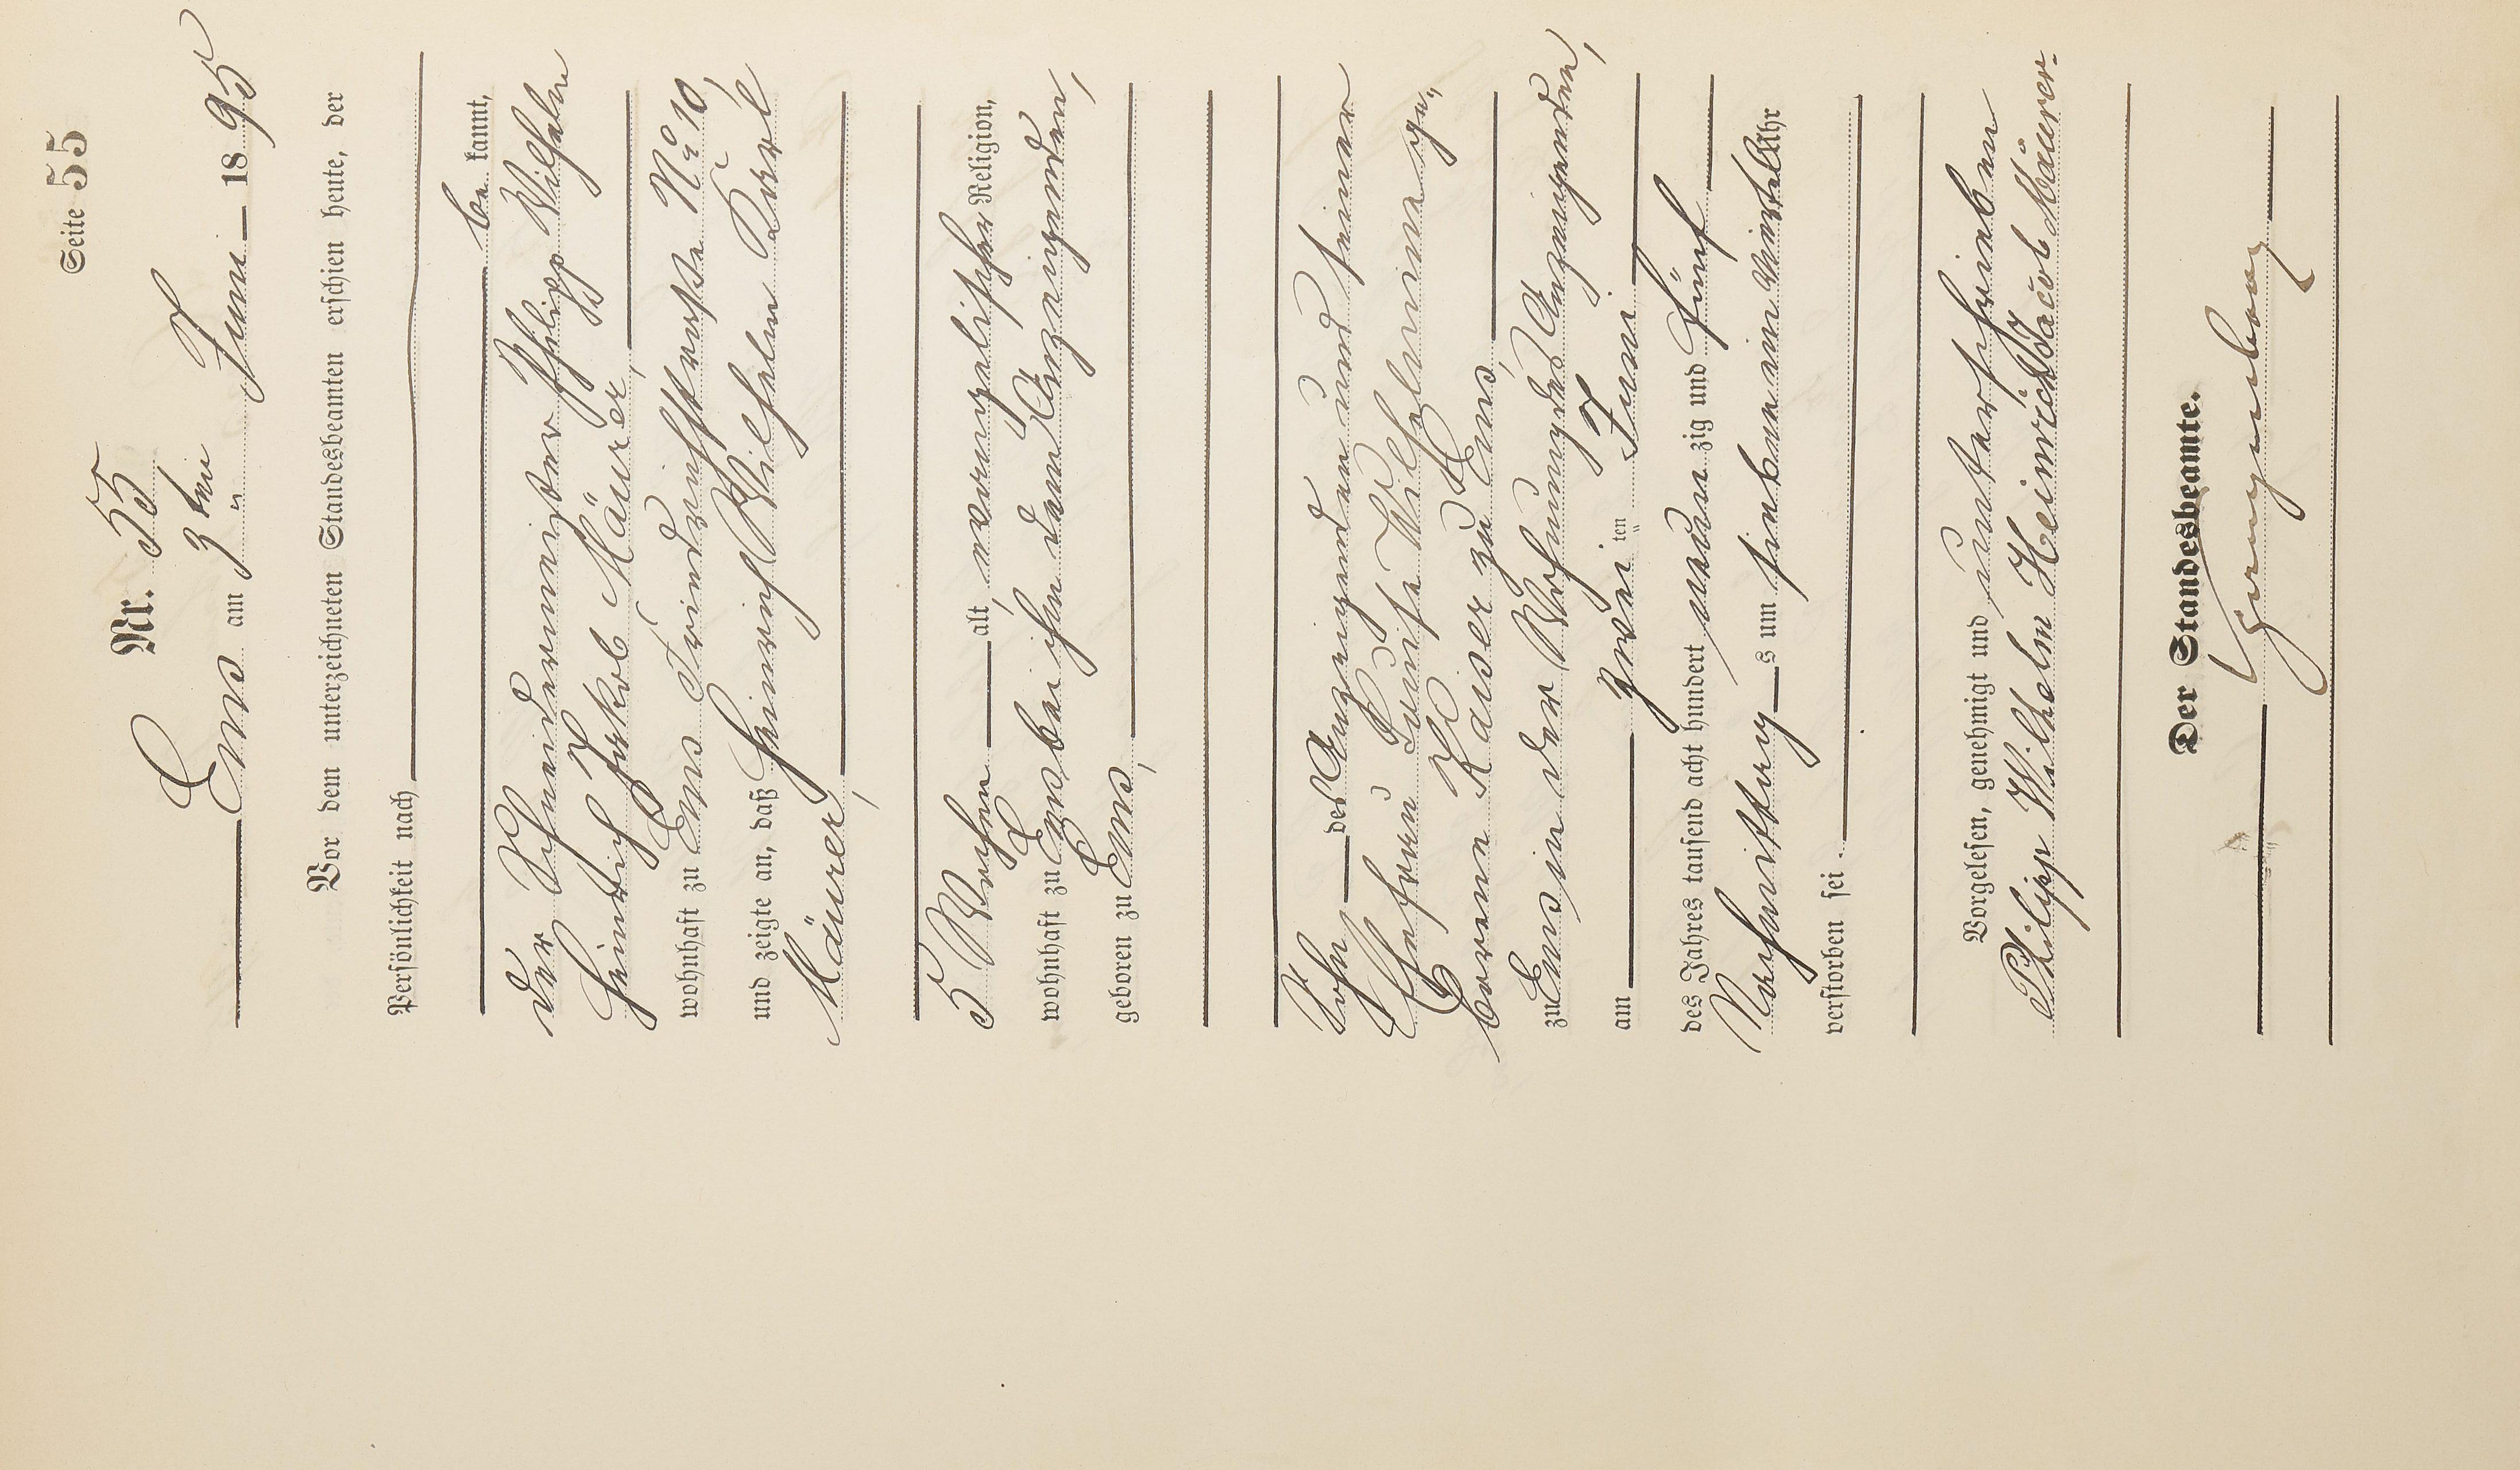 Seite 55
Nr. 55
Ems am 3ten Juni 1895
Vor dem unterzeichneten Standesbeamten erschien heute, der
Persönlichkeit nach
be kannt,
der Schneidermeister Philipp Wilhelm
Heinrich Jakob Mäurer,
wohnhaft zu Ems Friedrichstrasse No 10,
und zeigte an, daß Heinrich Wilhelm Karl
Mäurer,
5 Wochen alt, evangelischer Religion,
wohnhaft zu Ems bei ihm dem Anzeigenden,
geboren zu Ems,
Sohn des Anzeigenden und seiner
Ehefrau Louise Wilhelmine ge„
borene Kaiser zu Ems,
zu Ems in der Wohnung des Anzeigenden,
am zwei ten Juni
des Jahres tausend acht hundert neun zig und fünf
Nachmittag s um sieben ein viertel Uhr
verstorben sei.
Vorgelesen, genehmigt und unterschrieben
Philipp Wilhelm Heinrich Jacob Mäurer.
Der Standesbeamte.